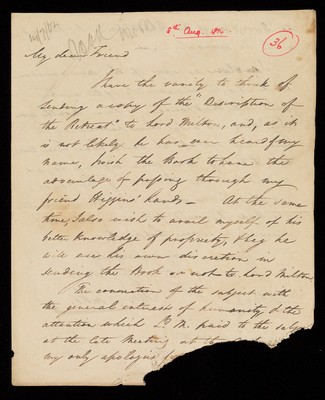 8th Aug.
36
My dear Friend
I have the vanity to think of
sending a copy of the "Description of
the Retreat" to Lord Milton, and, as it
is not likely he has ever heard of my
name, I wish the Book to have the
advantage of passing through my
friend Higgins' hands — At the same
time, I also wish to avail myself of his
better knowledge of propriety, & beg he
will use his own discretion in
sending the Book or not to Lord Milton.
The connection of the subject with
the general interests of humanity & the
attention which Ld M. paid to the subject
at the late Meeting at
my only apologies for